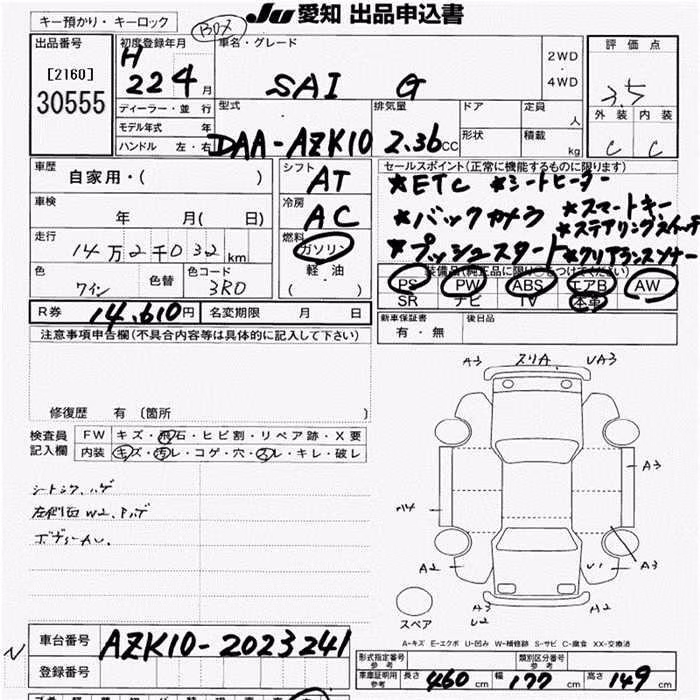 キー預かり・キーロック
JU 愛知 出品申込書
BOX
出品番号
[2160]
30555
初度登録年月
H
22 4 月
車名・グレード
SAI G
2WD
・
4WD
評価点
3.5
外装 内装
C C
ディーラー・並行
モデル年式 年
ハンドル 左・右
型式
DAA-AZK10
排気量
2.36 CC
ドア
形状
定員
人
積載
kg
車歴
自家用・( )
シフト
AT
セールスポイント(正常に機能するものに限ります)
★ETC ★シートヒーター
★バックカメラ ★スマートキー
★ステアリングスイッチ
★プッシュスタート ★クリアランスソナー
車検
年 月( 日)
冷房
AC
走行
14万2千032km
燃料
ガソリン
軽油
( ・ )
色
ワイン
色替
色コード
3R0
装備品(純正品に限り○をつけてください)
PS PW ABS エアB AW
SR ナビ TV 本革
R券 14,610円
名変期限 月 日
新車保証書
有・無
後日品
注意事項申告欄(不具合内容等は具体的に記入して下さい)
修復歴 有 〔箇所 〕
検査員
記入欄
FW キズ・飛石・ヒビ割・リペア跡・X要
内装 キズ・汚レ・コゲ・穴・スレ・キレ・破レ
左側面W2、
A3 スリA UA3
A3
A3
A2 U1
A3
U2
A2
スペア
A-キズ E-エクボ U-凹み W-補修跡 S-サビ C-腐食 XX-交換済
N
車台番号 AZK10-2023241
登録番号
形式指定番号
参考
類別区分番号
参考
車庫証明用
参考
長さ 460 cm 幅 177 cm 高さ 149 cm